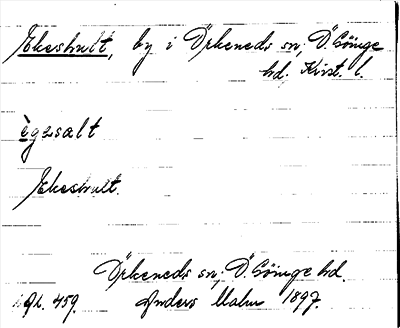 Ekeshult, by i Örkeneds sn, Ö. Göinge
hd, Krist. l.
ègasalt
Ekeshult.
Örkeneds sn, Ö. Göinge hd.
459. Anders Malm 1897.